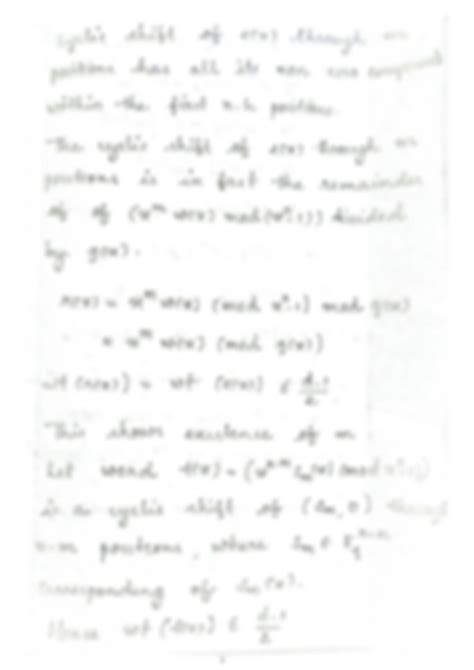 cyclic shift of e(x) through m
positions has all its non zero component
within the first n-k positions.
The cyclic shift of e(x) through m
positions is in fact the remainder
of of (x^m w(x) mod (x^n-1)) divided
by g(x).
r(x) = x^m w(x) (mod x^n-1) mod g(x)
= x^m w(x) (mod g(x))
wt (r(x)) = wt (e(x)) ≤ d-1/2.
This shows existence of m
Let word t(x) = (x^n-m s_m(x) (mod x^n-1)
is a cyclic shift of (s_m, 0) through
n-m positions, where s_m ∈
corresponding of s_m(x).
Hence wt (t(x)) ≤ d-1/2